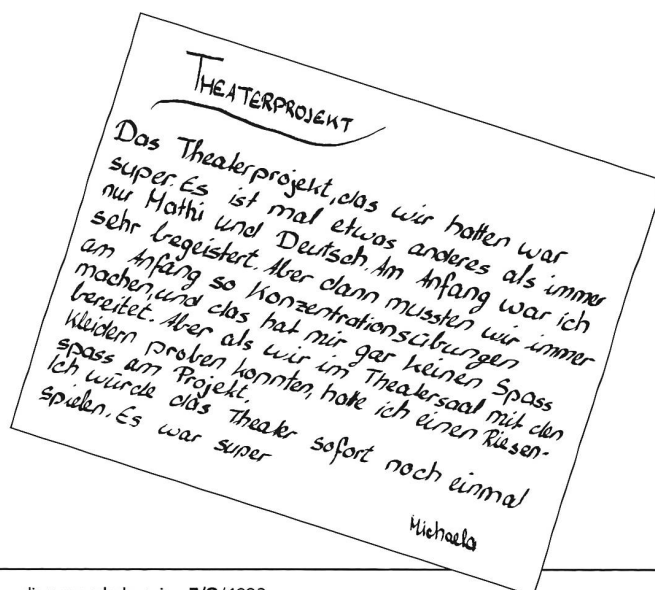 THEATERPROJEKT
Das Theaterprojekt, das wir hatten war
super. Es ist mal etwas anderes als immer
nur Mathi und Deutsch. Am Anfang war ich
sehr begeistert. Aber dann mussten wir immer
am Anfang so Konzentrationsübungen
machen, und das hat mir gar keinen Spass
bereitet. Aber als wir im Theatersaal mit den
Kleidern proben konnten, hatte ich einen Riesen-
spass am Projekt.
Ich würde das Theater sofort noch einmal
spielen. Es war super
Michaela